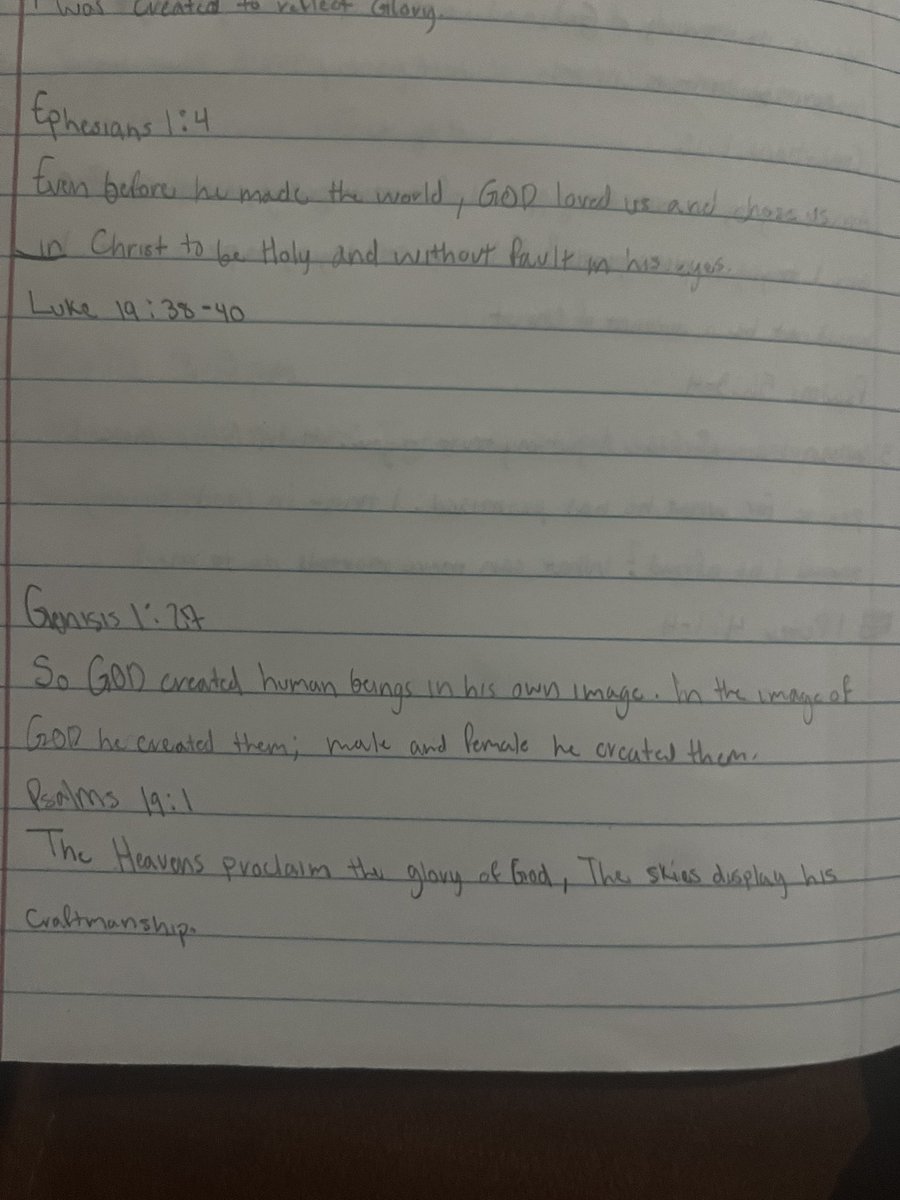 I was created to reflect Glory.
Ephesians 1:4
Even before he made the world, GOD loved us and chose us
in Christ to be Holy and without fault in his eyes.
Luke 19:38-40
Genisis 1:27
So GOD created human beings in his own image. In the image of
GOD he created them; male and female he created them.
Psalms 19:1
The Heavens proclaim the glory of God, The skies display his
Craftmanship.